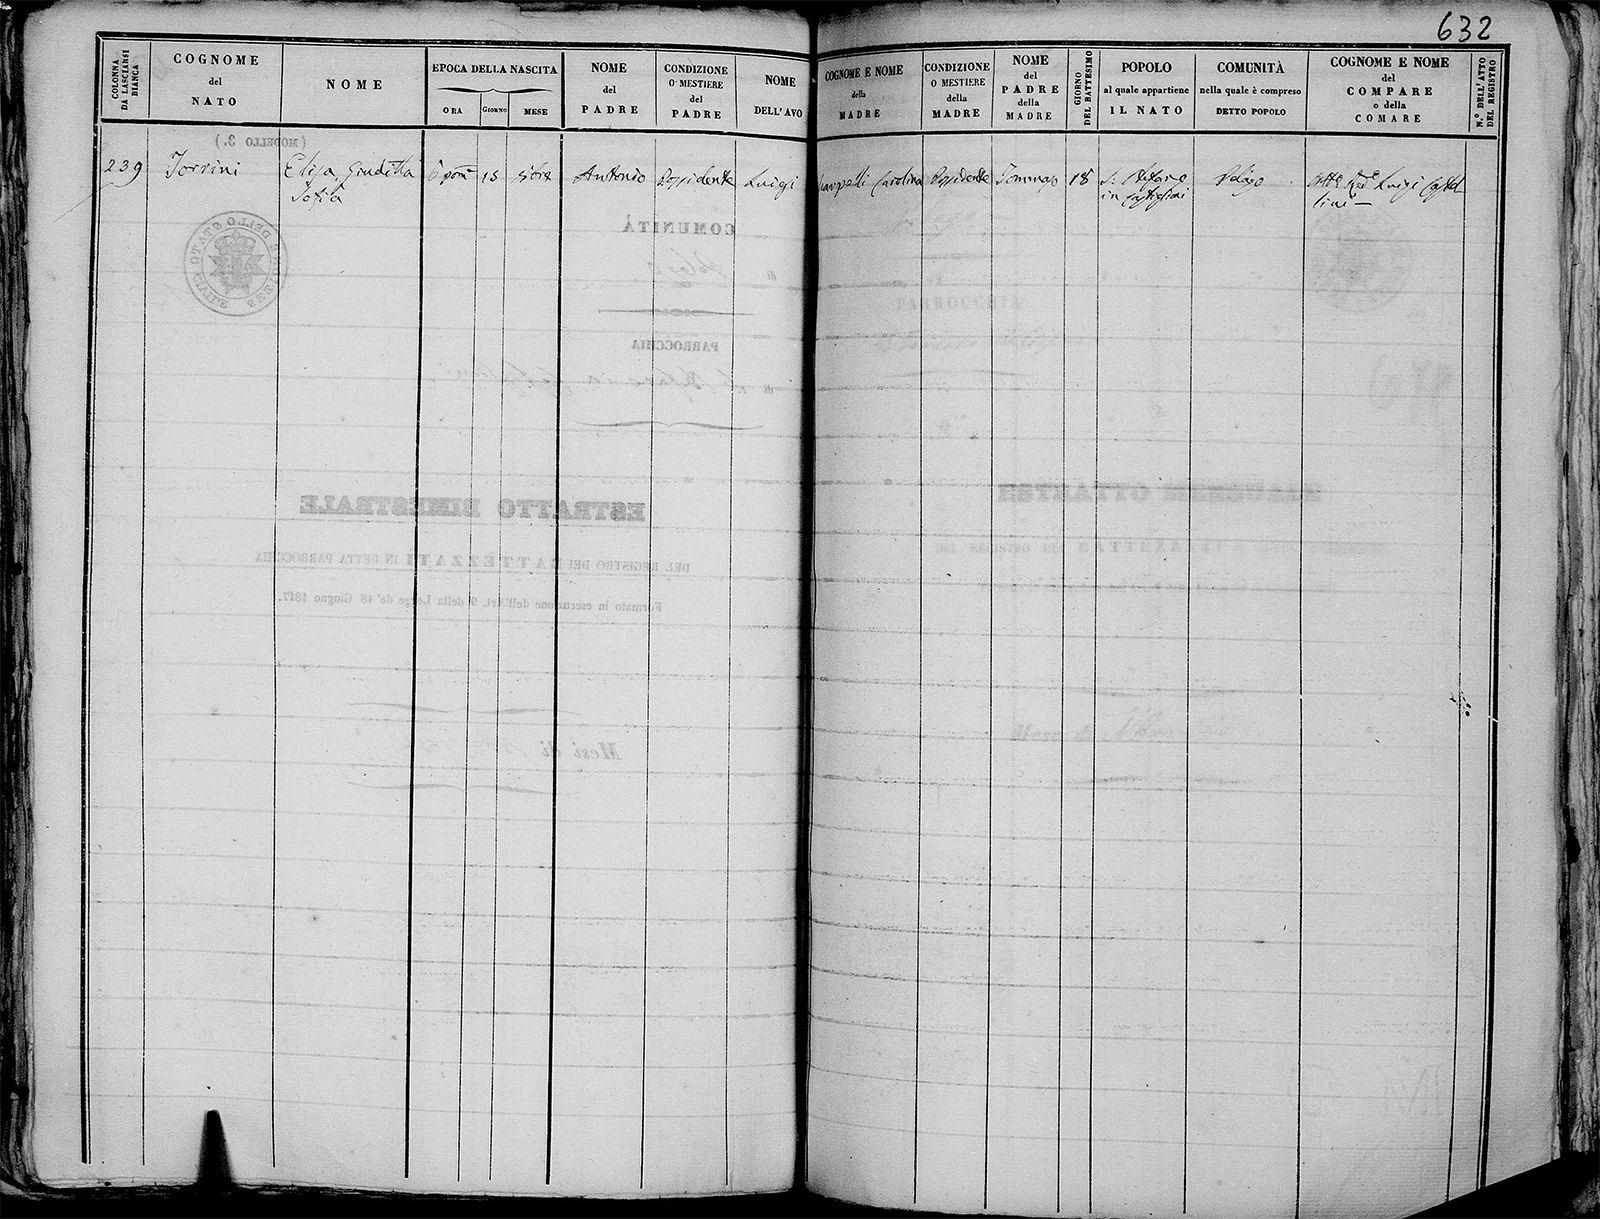 632
COLONNA
DA LASCIARSI
BIANCA
COGNOME
del
NATO
NOME
EPOCA DELLA NASCITA
ORA
GIORNO
MESE
NOME
del
PADRE
CONDIZIONE
O MESTIERE
del
PADRE
NOME
DELL'AVO
COGNOME E NOME
della
MADRE
CONDIZIONE
O MESTIERE
della
MADRE
NOME
del
PADRE
della
MADRE
GIORNO
DEL BATTESIMO
POPOLO
al quale appartiene
IL NATO
COMUNITÀ
nella quale è compreso
DETTO POPOLO
COGNOME E NOME
del
COMPARE
o della
COMARE
N.º DELL'ATTO
DEL REGISTRO
239
Torrini
Elisa Giuditta
Sofia
6 pom
18
Antonio
Possidente
Luigi
Carolina
Possidente
Tommaso
18
S. Stefano
in Castiglioni
Pelago
Luigi
(MODELLO 3.)
COMUNITÀ
di
PARROCCHIA
di
ESTRATTO BIMESTRALE
DEL REGISTRO DEI BATTEZZATI IN DETTA PARROCCHIA
Formato in esecuzione dell'Art. 9 della Legge de' 18 Giugno 1817.
Mesi di
PARROCCHIA